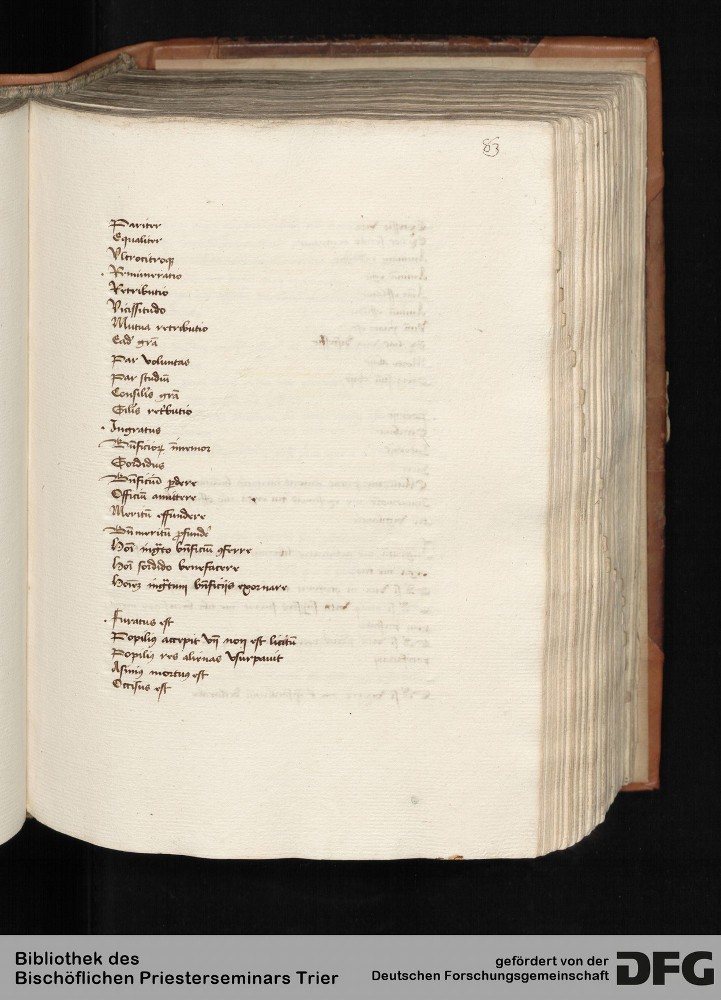 83
Pariter
Equaliter
Vltrocitroqꝫ
Remuneratio
Retributio
Vicissitudo
Mutua retributio
Ead̄ grā
Par voluntas
Par studiū
Consilis grā
Silis ret'butio
Ingratus
Bn̄ficioꝝ īmemor
Sordidus
Bn̄ficiū ꝑdere
Officiū amittere
Meritū effundere
Bn̄meritū ꝓfundē
Hoī ingͣto bn̄ficiū ꝯferre
Hoī sordido benefacere
Hoīeꝫ ingͣtum bn̄ficijs exornare
Furatus est
Popilius accepit vn̄ non est licitū
Popilius res alienas vsurpauit
Asinius mortuus est
Occisus est
Bibliothek des
Bischöflichen Priesterseminars Trier
gefördert von der
Deutschen Forschungsgemeinschaft
DFG